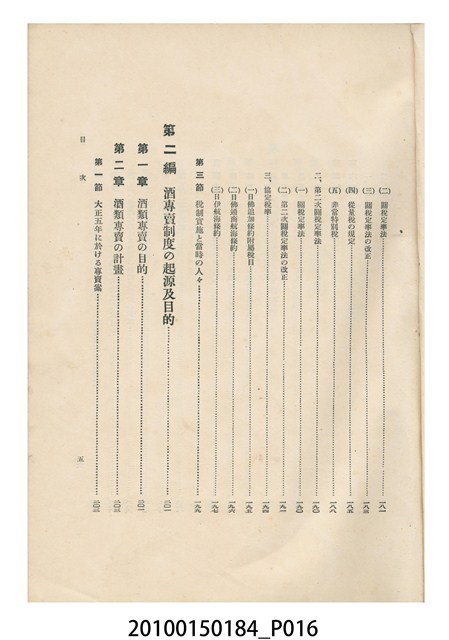 (二) 關稅定率法……一八一
(三) 關稅定率法の改正……一八三
(四) 從量稅の規定……一八五
(五) 非常特別稅……一八八
二、第二次關稅定率法……一九〇
(一) 關稅定率法……一九〇
(二) 第二次關稅定率法の改正……一九一
三、協定稅率……一九四
(一) 日佛追加條約附屬稅目……一九五
(二) 日佛通商航海條約……一九六
(三) 日伊航海條約……一九七
第三節 稅制實施と當時の人々……一九九
第二編 酒專賣制度の起源及目的……二〇一
第一章 酒類專賣の目的……二〇一
第二章 酒類專賣の計畫……二〇三
第一節 大正五年に於ける專賣案……二〇三
目次
五
20100150184_P016